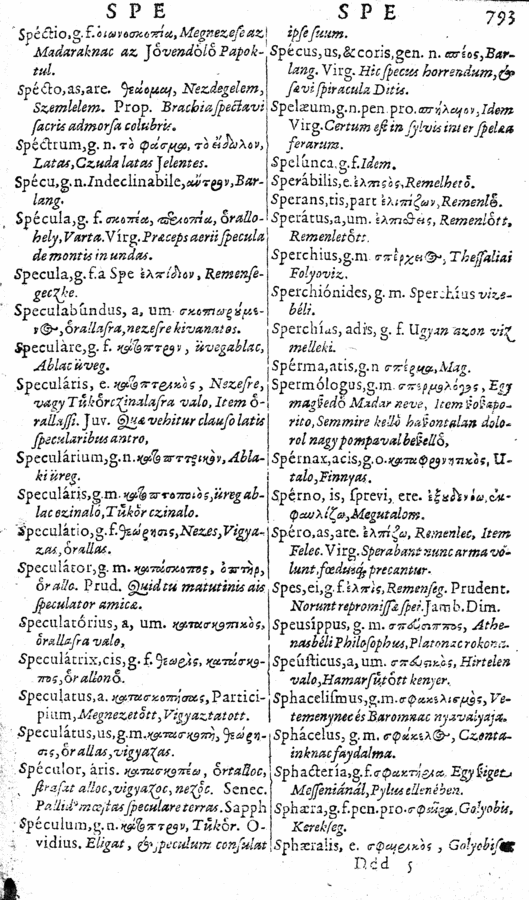 SPE
SPE
793
Spéctio, g.f. οἰωνοσκοπία, Megnezeſe az
Madaraknac az Jo̊vendo̊lo̊ Papok-
tul.
Spécto, as, are. θεάομαι, Nezdegelem,
Szemlelem. Prop. Brachia ſpectavi
ſacris admorſa colubris.
Spéctrum, g.n. τὸ φάσμα, τὸ εἴδωλον,
Latas, Czuda latas Jelentes.
Spécu, g.n. Indeclinabile, ἄντρον, Bar-
lang.
Spécula, g. f. σκοπία, o̊rallo-
hely, Varta. Virg. Præceps aerii ſpecula
de montis in undas.
Specula, g.f. a Spe ἐλπίδιον, Remenſe-
geczke.
Speculabúndus, a, um. σκοπιωρούμε-
νος, o̊rallaſra, nezeſre kivanatos.
Speculáre, g. f. κάτοπτρον, u̇vegablac,
Ablac u̇veg.
Speculáris, e. κατοπτρικὸς, Nezeſre,
vagy Tu̇ko̊rczinalaſra valo, Item o̊-
rallaſſi. Juv. Quæ vehitur clauſo latis
ſpecularibus antro,
Speculárium, g.n. κατοπτρικὸν, Abla-
ki u̇reg.
Speculáris, g.m. κατοπτοποιὸς, u̇reg ab-
lac czinalo, Tu̇ko̊r czinalo.
Speculátio, g.f. θεώρησις, Nezes, Vigya-
zas, o̊rallas.
Speculátor, g. m. κατάσκοπος, ὀπτὴρ,
o̊rallo. Prud. Quid tu matutinis ais
ſpeculator amicæ.
Speculatórius, a, um. κατασκοπικὸς,
o̊rallaſra valo,
Speculátrix, cis, g. f. θεωρὶς, κατάσκο-
πος, o̊rallono̊.
Speculatus, a. κατασκοπήσας, Partici-
pium, Megnezeto̊tt, Vigyaztatott.
Speculátus, us, g.m. κατασκοπὴ, θεώρη-
σις, o̊rallas, vigyazas.
Spéculor, áris. κατασκοπέω, o̊rtalloc,
ſtraſat alloc, vigyazoc, nezo̊c. Senec.
Pallid' mœſtas ſpeculare terras. Sapph
Spéculum, g.n. κάτοπτρον, Tu̇ko̊r. O-
vidius. Eligat, & ſpeculum conſulat
ipſe ſuum.
Spécus, us, & coris, gen. n. σπέος, Bar-
lang. Virg. Hic ſpecus horrendum, &
ſævi ſpiracula Ditis.
Spelæum, g.n. pen. pro. σπήλαιον, Idem
Virg. Certum eſt in ſylvis inter ſpelæa
ferarum.
Spelúnca, g.f. Idem.
Sperábilis, e. ἐλπιςὸς, Remelheto̊.
Sperans, tis, part ἐλπίζων, Remenlo̊.
Sperátus, a, um. ἐλπισθεὶς, Remenlo̊tt,
Remenleto̊tt.
Sperchius, g.m σπέρχειος, Theſſaliai
Folyoviz.
Sperchiónides, g. m. Sperchíus vize-
béli.
Sperchías, adis, g. f. Ugyan azon viz
melleki.
Spérma, atis, g.n σπέρμα, Mag.
Spermólogus, g.m. σπερμολόγος, Egy
magvedo̊ Madar neve, Item
rito, Semmire kello̊ haſzontalan dolo-
rol nagy pompaval beſzello̊,
Spérnax, acis, g.o. καταφρονητικὸς, U-
talo, Finnyas.
Spérno, is, ſprevi, ere. ἐξουδενόω, ἐκ-
φαυλίζω, Megutalom.
Spéro, as, are. ἐλπίζω, Remenlec, Item
Felec. Virg. Sperabant nunc arma vo-
lunt, fœduſq; precantur.
Spes, ei, g.f. ἐλπὶς, Remenſeg. Prudent.
Norunt repromiſſæ ſpei. Jamb. Dim.
Speusíppus, g. m. σπεύσιππος, Athe-
nasbéli Philoſophus, Platonac rokona.
Speúſticus, a, um. σπευστικὸς, Hirtelen
valo, Hamar ſu̇to̊tt kenyer.
Sphaceliſmus, g.m. σφακελισμὸς, Ve-
temenynec és Baromnac nyavalyaja.
Sphácelus, g. m. σφάκελος, Czonta-
inknac faydalma.
Sphacteria, g.f. σφακτήρια. Egy ſziget
Meſſeniánál, Pylus ellenében.
Sphæra, g.f. pen. pro. σφαῖρα, Golyobis,
Kerekſeg.
Sphæralis, e. σφαιρικὸς, Golyobiſ
Ddd 5